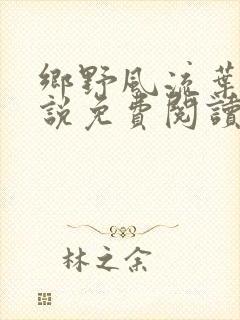 鄉野風流葉
說免費閱讀
林之余